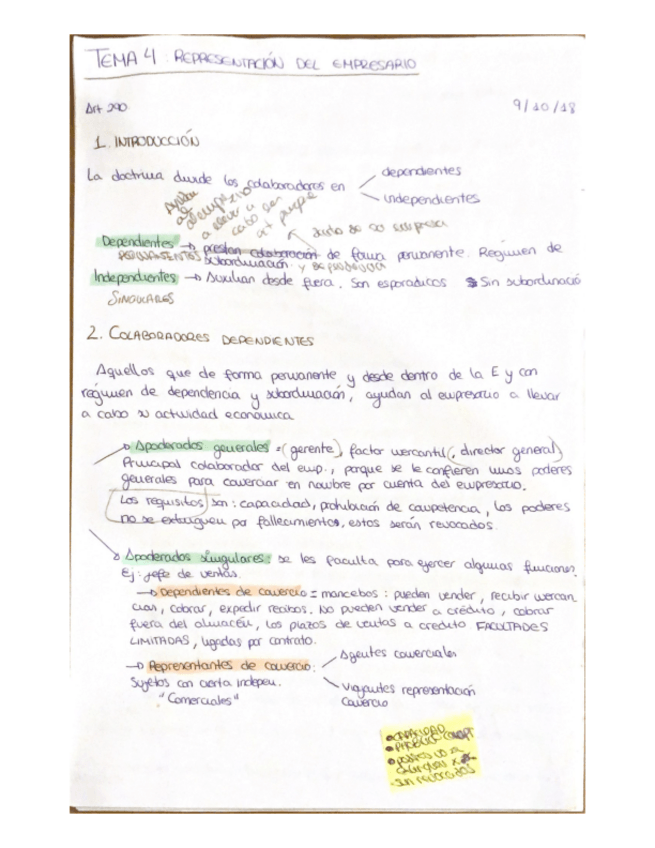 TEMA 4: REPRESENTACIÓN DEL EMPRESARIO
Art 290
9/10/18
1. INTRODUCCIÓN
La doctrina divide los colaboradores en
dependientes
independientes
ayudan
al
empresario
a llevar a
cabo ser
dentro de su empresa
Dependientes → prestan colaboración de forma permanente. Regimen de
PERMANENTES subordinación y dependencia
Independientes → Auxilian desde fuera. Son esporadicos Sin subordinació
SINGULARES
2. COLABORADORES DEPENDIENTES
Aquellos que de forma permanente y desde dentro de la E y con
régimen de dependencia y subordinación, ayudan al empresario a llevar
a cabo su actividad económica
Apoderados generales = (gerente), factor mercantil, (director general)
Principal colaborador del emp., porque se le confieren unos poderes
generales para comerciar en nombre por cuenta del empresario.
Los requisitos son: capacidad, prohibición de competencia, los poderes
no se extinguen por fallecimientos, estos serán revocados.
Apoderados singulares: se les faculta para ejercer algunas funciones.
Ej: jefe de ventas.
→ Dependientes de comercio = mancebos: pueden vender, recibir mercan
cias, cobrar, expedir recibos. No pueden vender a crédito, cobrar
fuera del almacén, los plazos de ventas a credito FACULTADES
LIMITADAS, ligadas por contrato.
→ Representantes de comercio:
Agentes comerciales
Sujetos con cierta indepen.
"Comerciales"
Viajantes representación
comercio
CAPACIDAD
PROHIBIC COMPT
poderes no se
son revocados